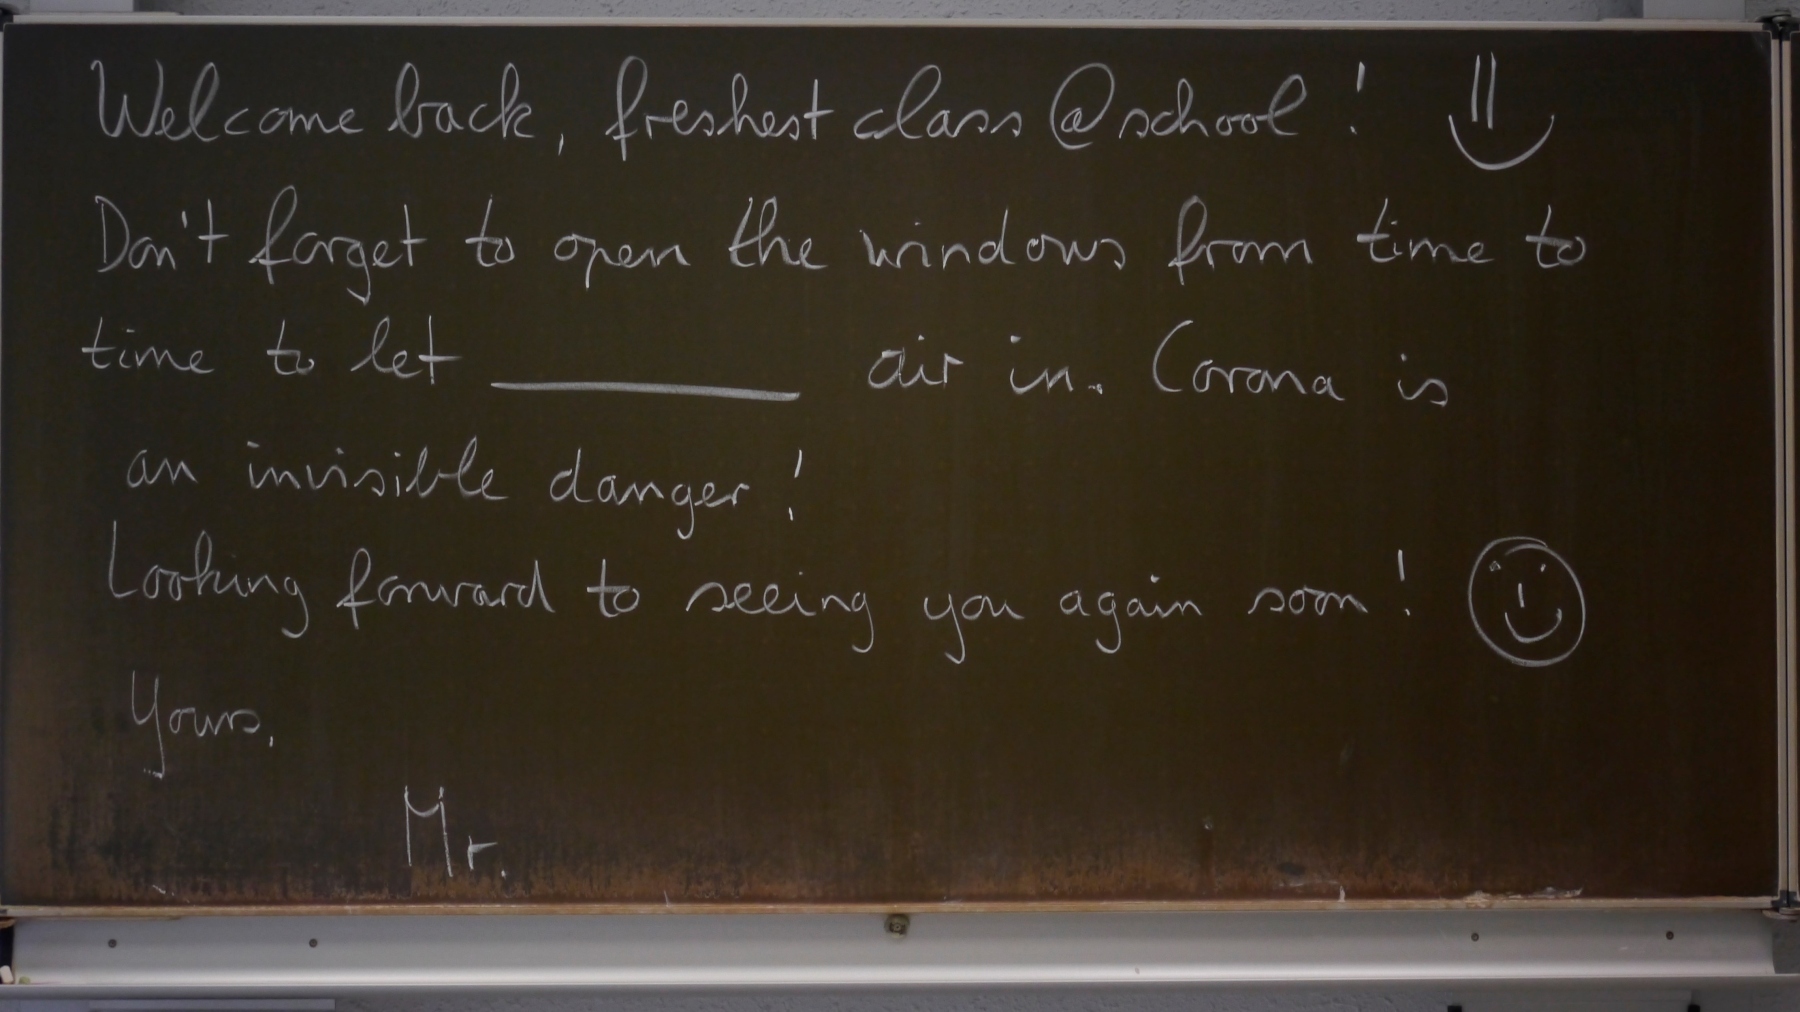 Welcome back, freshest class @school!
Don't forget to open the windows from time to
time to let ________ air in. Corona is
an invisible danger!
Looking forward to seeing you again soon!
Yours,
Mr.